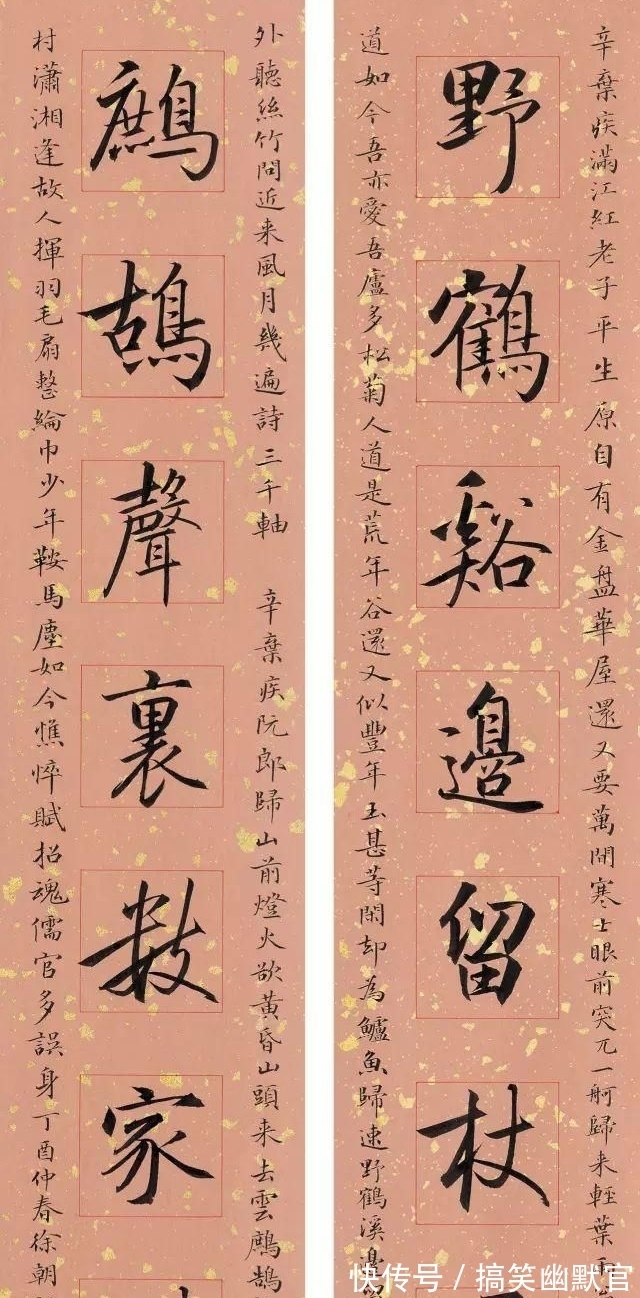 辛棄疾滿江紅老子平生原自有金盤華屋還又要萬間寒士眼前突兀一舸歸来輕葉兩
野鶴谿邊留杖
道如今吾亦愛吾廬多松菊人道是荒年谷還又似豐年玉甚等閑却為鱸魚歸速野鶴溪邊
外聽絲竹問近来風月幾遍詩三千軸 辛棄疾阮郎歸山前燈火欲黄昏山頭来去雲鷓鴣
鷓鴣聲裏數家
村瀟湘逢故人揮羽毛扇整綸巾少年鞍馬塵如今憔悴賦招魂儒官多誤身丁酉仲春徐朝
快传号 / 搞笑幽默官